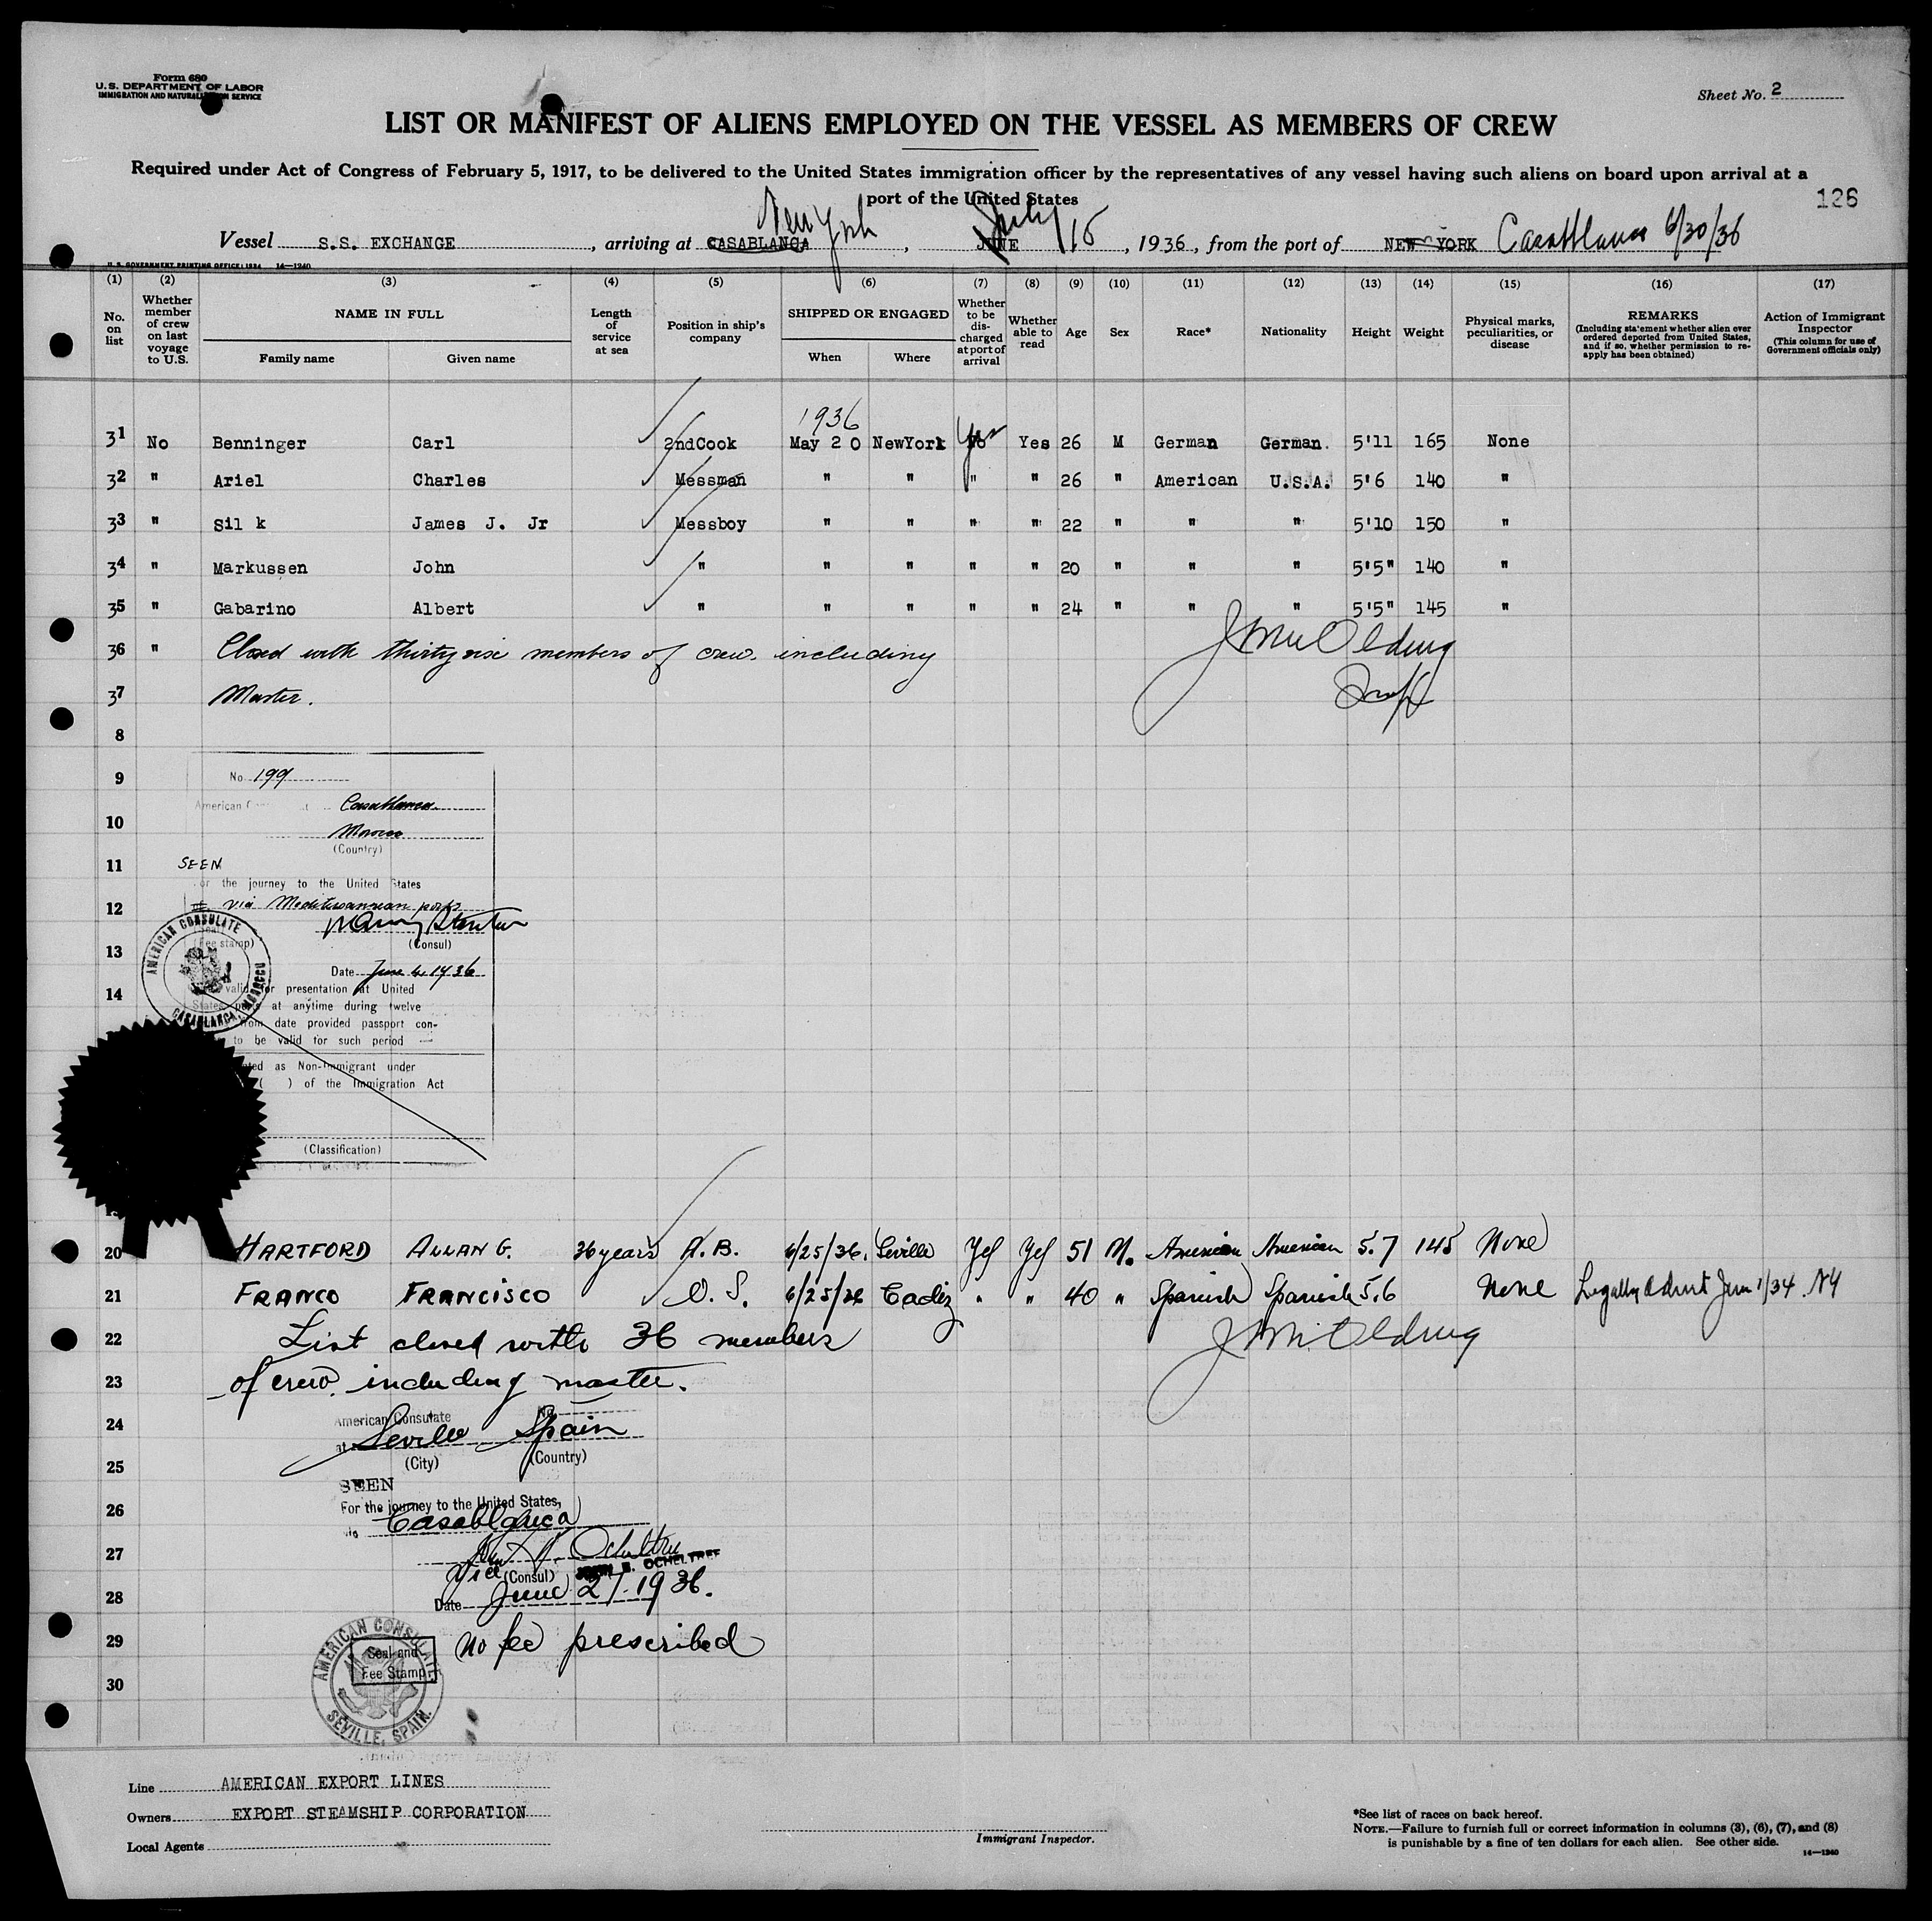 Form 680
U.S. DEPARTMENT OF LABOR
IMMIGRATION AND NATURALIZATION SERVICE
Sheet No. 2
LIST OR MANIFEST OF ALIENS EMPLOYED ON THE VESSEL AS MEMBERS OF CREW
Required under Act of Congress of February 5, 1917, to be delivered to the United States immigration officer by the representatives of any vessel having such aliens on board upon arrival at a
port of the United States
126
New York July 15
Vessel S.S. EXCHANGE, arriving at CASABLANCA, JUNE, 1936, from the port of NEW YORK Casablanca 6/30/36
U. S. GOVERNMENT PRINTING OFFICE: 1934 14—1240
(1) (2) (3) (4) (5) (6) (7) (8) (9) (10) (11) (12) (13) (14) (15) (16) (17)
No. on list
Whether member of crew on last voyage to U.S.
NAME IN FULL
Family name Given name
Length of service at sea
Position in ship's company
SHIPPED OR ENGAGED
When Where
Whether to be discharged at port of arrival
Whether able to read
Age
Sex
Race*
Nationality
Height
Weight
Physical marks, peculiarities, or disease
REMARKS
(Including statement whether alien ever ordered deported from United States, and if so, whether permission to reapply has been obtained)
Action of Immigrant Inspector
(This column for use of Government officials only)
1936
31 No Benninger Carl 2ndCook May 20 NewYork No Yes Yes 26 M German German. 5'11 165 None
32 " Ariel Charles Messman " " " " 26 " American U.S.A. 5'6 140 "
33 " Silk James J. Jr Messboy " " " " 22 " " " 5'10 150 "
34 " Markussen John " " " " " 20 " " " 5'5" 140 "
35 " Gabarino Albert " " " " " 24 " " " 5'5" 145 "
36 " Closed with thirty six members of crew. including
37 Master.
8
9 No. 199
American Casablanca
10 Morocco
(Country)
11 SEEN
for the journey to the United States
12 via Mediterranean ports
13 (Fee stamp) (Consul)
Date June 4 1936
14 valid for presentation at United
States ports at anytime during twelve
from date provided passport con-
to be valid for such period
as Non-Immigrant under
( ) of the Immigration Act
(Classification)
AMERICAN CONSULATE
CASABLANCA, MOROCCO
20 HARTFORD ALLAN G. 36 years A.B. 6/25/36. Seville Yes Yes 51 M. American American 5.7 145 None
21 FRANCO FRANCISCO O.S. 6/25/36 Cadiz " " 40 " Spanish Spanish 5.6 None Legally Admit June 1/34 NY
22 List closed with 36 members
23 of crew. including master.
24 American Consulate No.
at Seville Spain
25 (City) (Country)
SEEN
For the journey to the United States,
26 via Casablanca
27 JOHN B. OCHELTREE
Vice (Consul)
28 Date June 27. 1936.
29 No fee prescribed
Seal and
Fee Stamp
30
AMERICAN CONSULATE
SEVILLE, SPAIN.
Line AMERICAN EXPORT LINES
Owners EXPORT STEAMSHIP CORPORATION
Local Agents
Immigrant Inspector.
*See list of races on back hereof.
NOTE.—Failure to furnish full or correct information in columns (3), (6), (7), and (8)
is punishable by a fine of ten dollars for each alien. See other side.
14—1240